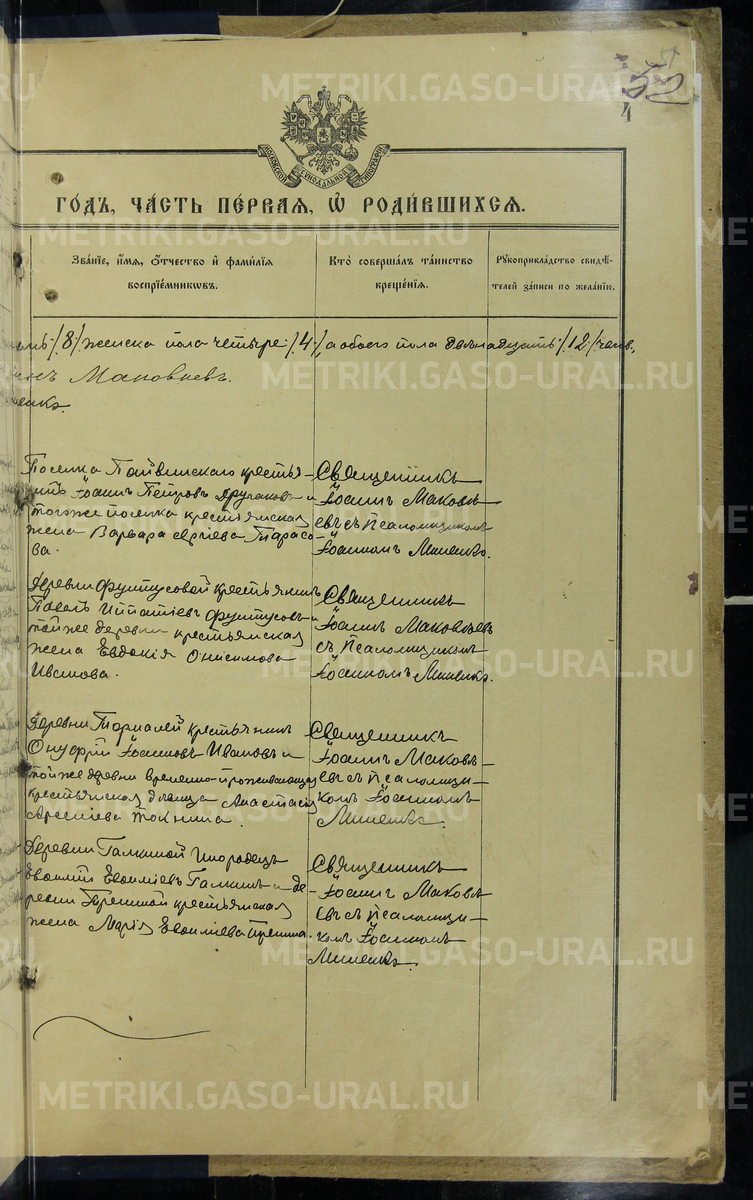 52
4
МОСКОВСКОЙ СѴНОДАЛЬНОЙ ТИПОГРАФІИ
ГО́ДЪ, ЧА́СТЬ ПЕ́РВАЯ, Ѡ РОДИ́ВШИХСЯ.
Зва́нїе, и́мя, о́тчество и фами́лїя воспрїе́мниковъ.
Кто̀ совершалъ та́инство креще́нїя.
Рукоприкла́дство свидѣ́телей за́писи по жела́нїю.
/8/ женска пола четыре /4/, а обоего пола двѣнадцать /12/ челов.
Маковѣевъ.
Поселка Патвинскаго крестья-
нинъ Іоаннъ Петровъ и
того же поселка крестьянская
жена Варвара Сергіева Тарасо-
ва.
Священникъ
Іоаннъ Маковѣ-
евъ съ Псаломщикомъ
Іоанномъ Миненко.
Деревни Фунтусовой крестьянинъ
Павелъ Ипатіевъ Фунтусовъ и
той же деревни крестьянская
жена Евдокія Онисимова
Иванова.
Священникъ
Іоаннъ Маковѣевъ
съ Псаломщикомъ
Іоанномъ Миненко.
Деревни крестьянинъ
Онуфрій Іоанновъ Ивановъ и
той же деревни временно-проживающая
крестьянская дѣвица Анастасія
Арсеніева
Священникъ
Іоаннъ Маковѣ-
евъ съ Псаломщи-
комъ Іоанномъ
Миненко.
Деревни Галкиной Инородецъ
Евсилій Евсиліевъ Галкинъ и де-
ревни крестьянская
жена Марія Евсиліева
Священникъ
Іоаннъ Маковѣ-
евъ съ Псаломщи-
комъ Іоанномъ
Миненко.
METRIKI.GASO-URAL.RU